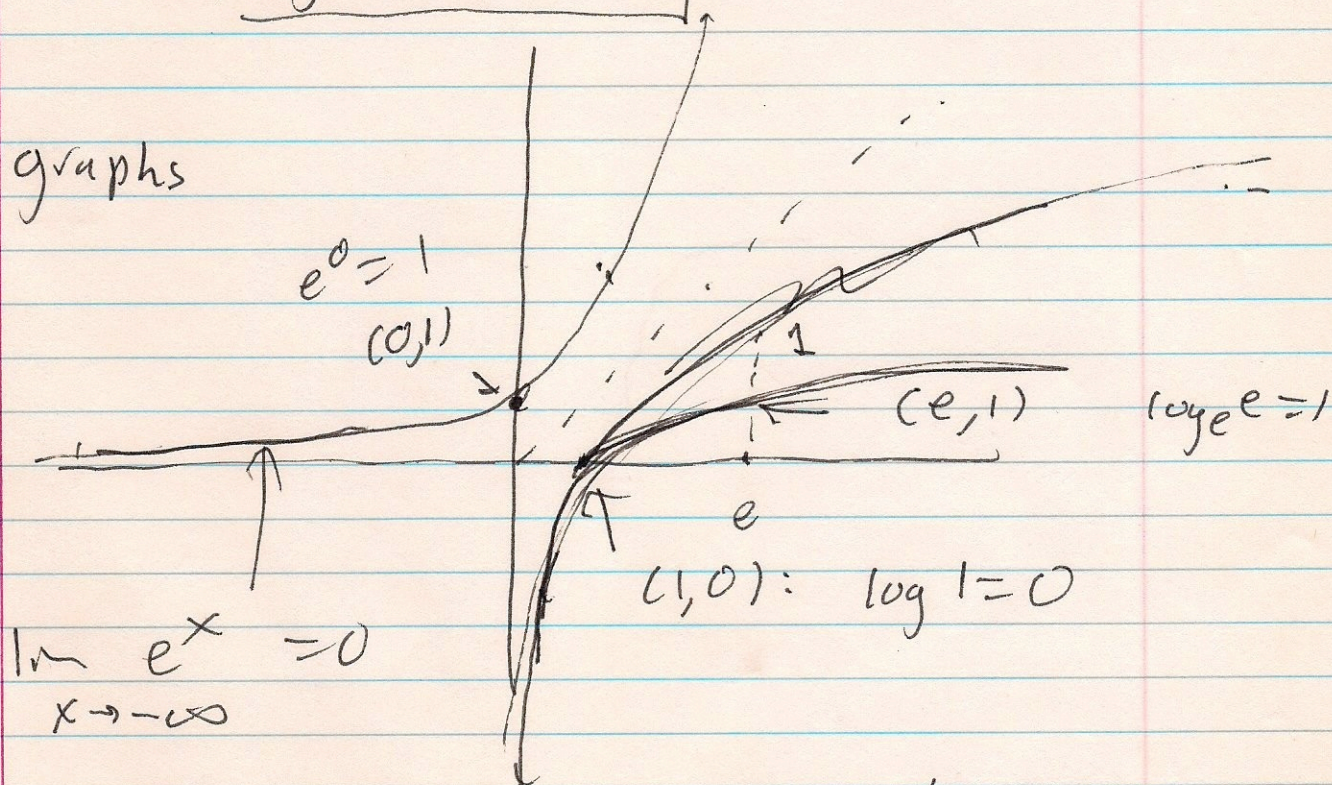 graphs
e^0 = 1
(0,1)
1
(e,1)
log_e e = 1
e
(1,0): log 1 = 0
lim e^x = 0
x→-∞